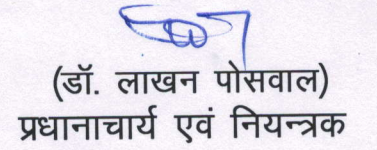 (डॉ. लाखन पोसवाल)
प्रधानाचार्य एवं नियन्त्रक